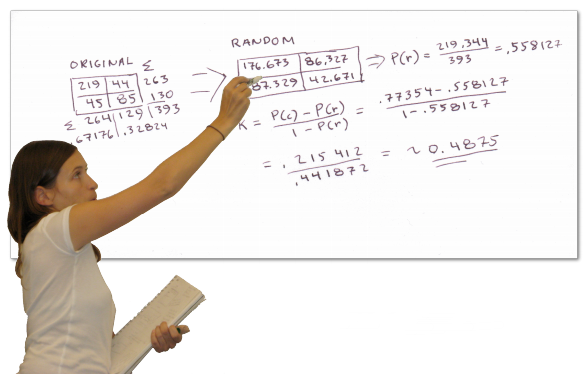 RANDOM
ORIGINAL Σ
219 44 263
45 85 130
Σ 264 129 393
.67176 .32824
176.673 86,327
87.329 42.671
⇒ P(r) = 219,344 / 393 = .558127
K = P(c) - P(r) / 1 - P(r) = .77354 - .558127 / 1 - .558127
= .215412 / .441872 = ~ 0.4875